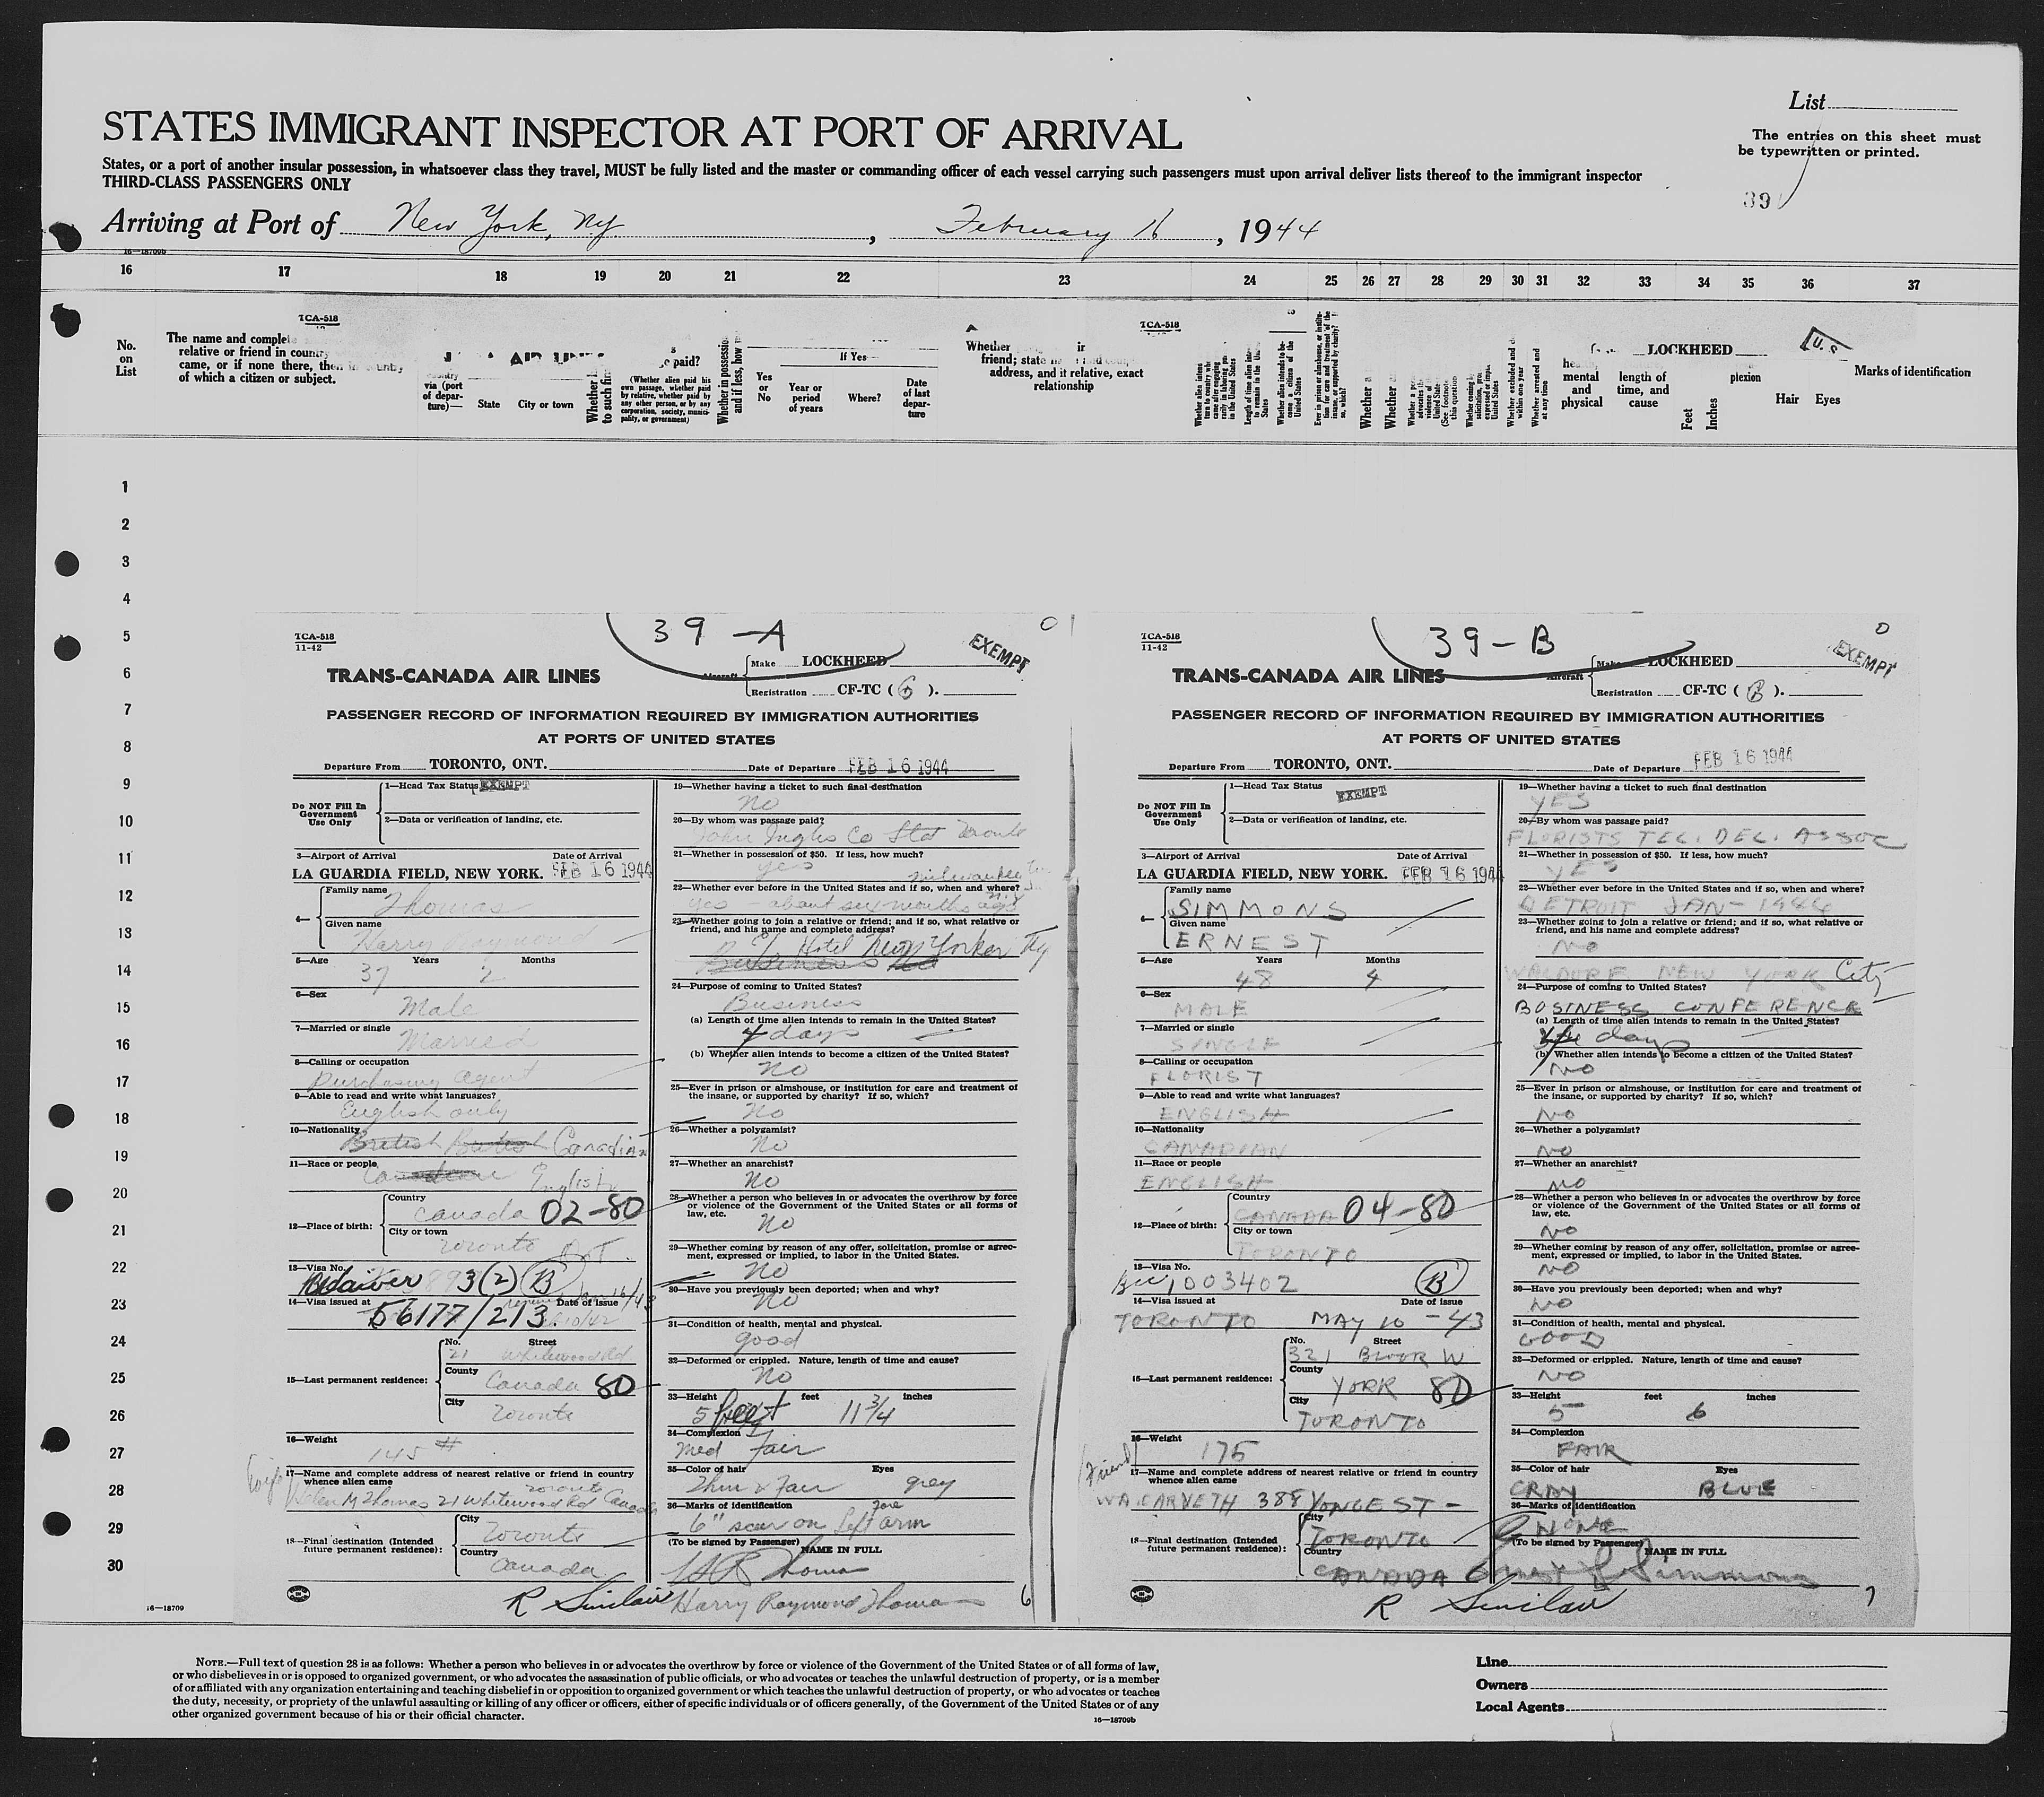 List
STATES IMMIGRANT INSPECTOR AT PORT OF ARRIVAL
The entries on this sheet must
be typewritten or printed.
States, or a port of another insular possession, in whatsoever class they travel, MUST be fully listed and the master or commanding officer of each vessel carrying such passengers must upon arrival deliver lists thereof to the immigrant inspector
THIRD-CLASS PASSENGERS ONLY
39
Arriving at Port of New York, NY, February 16, 1944
16—18709b
16 17 18 19 20 21 22 23 24 25 26 27 28 29 30 31 32 33 34 35 36 37
TCA-518
TCA-518
No.
on
List
The name and complete
relative or friend in country
came, or if none there, then in country
of which a citizen or subject.
via (port
of depar-
ture)—
State
City or town
paid?
(Whether alien paid his
own passage, whether paid
by relative, whether paid by
any other person, or by any
corporation, society, munici-
pality, or government)
If Yes
Yes
or
No
Year or
period
of years
Where?
Date
of last
depar-
ture
Whether
friend; state
address, and if relative, exact
relationship
LOCKHEED
mental
and
physical
length of
time, and
cause
Feet
Inches
plexion
Hair
Eyes
U.S
Marks of identification
1
2
3
4
5
6
7
8
9
10
11
12
13
14
15
16
17
18
19
20
21
22
23
24
25
26
27
28
29
30
39-A
TCA-518
11-42
EXEMPT
TRANS-CANADA AIR LINES
Aircraft
Make LOCKHEED
Registration CF-TC (G).
PASSENGER RECORD OF INFORMATION REQUIRED BY IMMIGRATION AUTHORITIES
AT PORTS OF UNITED STATES
Departure From TORONTO, ONT. Date of Departure FEB 16 1944
Do NOT Fill In
Government
Use Only
1—Head Tax Status EXEMPT
2—Data or verification of landing, etc.
3—Airport of Arrival Date of Arrival
LA GUARDIA FIELD, NEW YORK. FEB 16 1944
4— Family name
Thomas
Given name
Harry Raymond
5—Age Years Months
37 2
6—Sex
Male
7—Married or single
Married
8—Calling or occupation
Purchasing agent
9—Able to read and write what languages?
English only
10—Nationality
British British Canadian
11—Race or people
Canadian English
12—Place of birth:
Country
Canada 02-80
City or town
Toronto Ont.
13—Visa No.
3(2) B
14—Visa issued at Date of issue
56177/213
15—Last permanent residence:
No. Street
21 Whitewood Rd
County
Canada 80
City
Toronto
16—Weight
145 #
17—Name and complete address of nearest relative or friend in country
whence alien came
wife Toronto
Helen M Thomas 21 Whitewood Rd Canada
18—Final destination (Intended
future permanent residence):
City
Toronto
Country
Canada
R Sinclair
19—Whether having a ticket to such final destination
No
20—By whom was passage paid?
John Inglis Co Ltd Toronto
21—Whether in possession of $50. If less, how much?
yes
Milwaukee
22—Whether ever before in the United States and if so, when and where?
yes - about six months ago
23—Whether going to join a relative or friend; and if so, what relative or
friend, and his name and complete address?
Hotel New Yorker
Business
24—Purpose of coming to United States?
Business
(a) Length of time alien intends to remain in the United States?
4 days
(b) Whether alien intends to become a citizen of the United States?
No
25—Ever in prison or almshouse, or institution for care and treatment of
the insane, or supported by charity? If so, which?
No
26—Whether a polygamist?
No
27—Whether an anarchist?
No
28—Whether a person who believes in or advocates the overthrow by force
or violence of the Government of the United States or all forms of
law, etc.
No
29—Whether coming by reason of any offer, solicitation, promise or agree-
ment, expressed or implied, to labor in the United States.
No
30—Have you previously been deported; when and why?
No
31—Condition of health, mental and physical.
good
32—Deformed or crippled. Nature, length of time and cause?
No
33—Height feet inches
5 feet 11 3/4
34—Complexion
Med Fair
35—Color of hair Eyes
Thin & Fair grey
36—Marks of identification
6" scar on left fore arm
(To be signed by Passenger) NAME IN FULL
H R Thomas
Harry Raymond Thomas 6
39-B
TCA-518
11-42
EXEMPT
TRANS-CANADA AIR LINES
Aircraft
Make LOCKHEED
Registration CF-TC (G).
PASSENGER RECORD OF INFORMATION REQUIRED BY IMMIGRATION AUTHORITIES
AT PORTS OF UNITED STATES
Departure From TORONTO, ONT. Date of Departure FEB 16 1944
Do NOT Fill In
Government
Use Only
1—Head Tax Status
EXEMPT
2—Data or verification of landing, etc.
3—Airport of Arrival Date of Arrival
LA GUARDIA FIELD, NEW YORK. FEB 16 1944
4— Family name
SIMMONS
Given name
ERNEST
5—Age Years Months
48 4
6—Sex
MALE
7—Married or single
SINGLE
8—Calling or occupation
FLORIST
9—Able to read and write what languages?
ENGLISH
10—Nationality
CANADIAN
11—Race or people
ENGLISH
12—Place of birth:
Country
CANADA 04-80
City or town
TORONTO
13—Visa No.
003402 B
14—Visa issued at Date of issue
TORONTO MAY 10 - 43
15—Last permanent residence:
No. Street
321 BLOOR W
County
YORK 80
City
TORONTO
16—Weight
175
Friend
17—Name and complete address of nearest relative or friend in country
whence alien came
W.A. CARVETH 388 YONGE ST -
18—Final destination (Intended
future permanent residence):
City
TORONTO
Country
CANADA
R Sinclair
19—Whether having a ticket to such final destination
YES
20—By whom was passage paid?
FLORISTS TEL. DEL. ASSOC
21—Whether in possession of $50. If less, how much?
YES
22—Whether ever before in the United States and if so, when and where?
DETROIT JAN - 1944
23—Whether going to join a relative or friend; and if so, what relative or
friend, and his name and complete address?
NO
WALDORF NEW YORK City
24—Purpose of coming to United States?
BUSINESS CONFERENCE
(a) Length of time alien intends to remain in the United States?
days
(b) Whether alien intends to become a citizen of the United States?
NO
25—Ever in prison or almshouse, or institution for care and treatment of
the insane, or supported by charity? If so, which?
NO
26—Whether a polygamist?
NO
27—Whether an anarchist?
NO
28—Whether a person who believes in or advocates the overthrow by force
or violence of the Government of the United States or all forms of
law, etc.
NO
29—Whether coming by reason of any offer, solicitation, promise or agree-
ment, expressed or implied, to labor in the United States.
NO
30—Have you previously been deported; when and why?
NO
31—Condition of health, mental and physical.
GOOD
32—Deformed or crippled. Nature, length of time and cause?
NO
33—Height feet inches
5 6
34—Complexion
FAIR
35—Color of hair Eyes
GRAY BLUE
36—Marks of identification
NONE
(To be signed by Passenger) NAME IN FULL
Ernest Simmons
7
16—18709
NOTE.—Full text of question 28 is as follows: Whether a person who believes in or advocates the overthrow by force or violence of the Government of the United States or of all forms of law,
or who disbelieves in or is opposed to organized government, or who advocates the assassination of public officials, or who advocates or teaches the unlawful destruction of property, or is a member
of or affiliated with any organization entertaining and teaching disbelief in or opposition to organized government or which teaches the unlawful destruction of property, or who advocates or teaches
the duty, necessity, or propriety of the unlawful assaulting or killing of any officer or officers, either of specific individuals or of officers generally, of the Government of the United States or of any
other organized government because of his or their official character.
16—18709b
Line
Owners
Local Agents